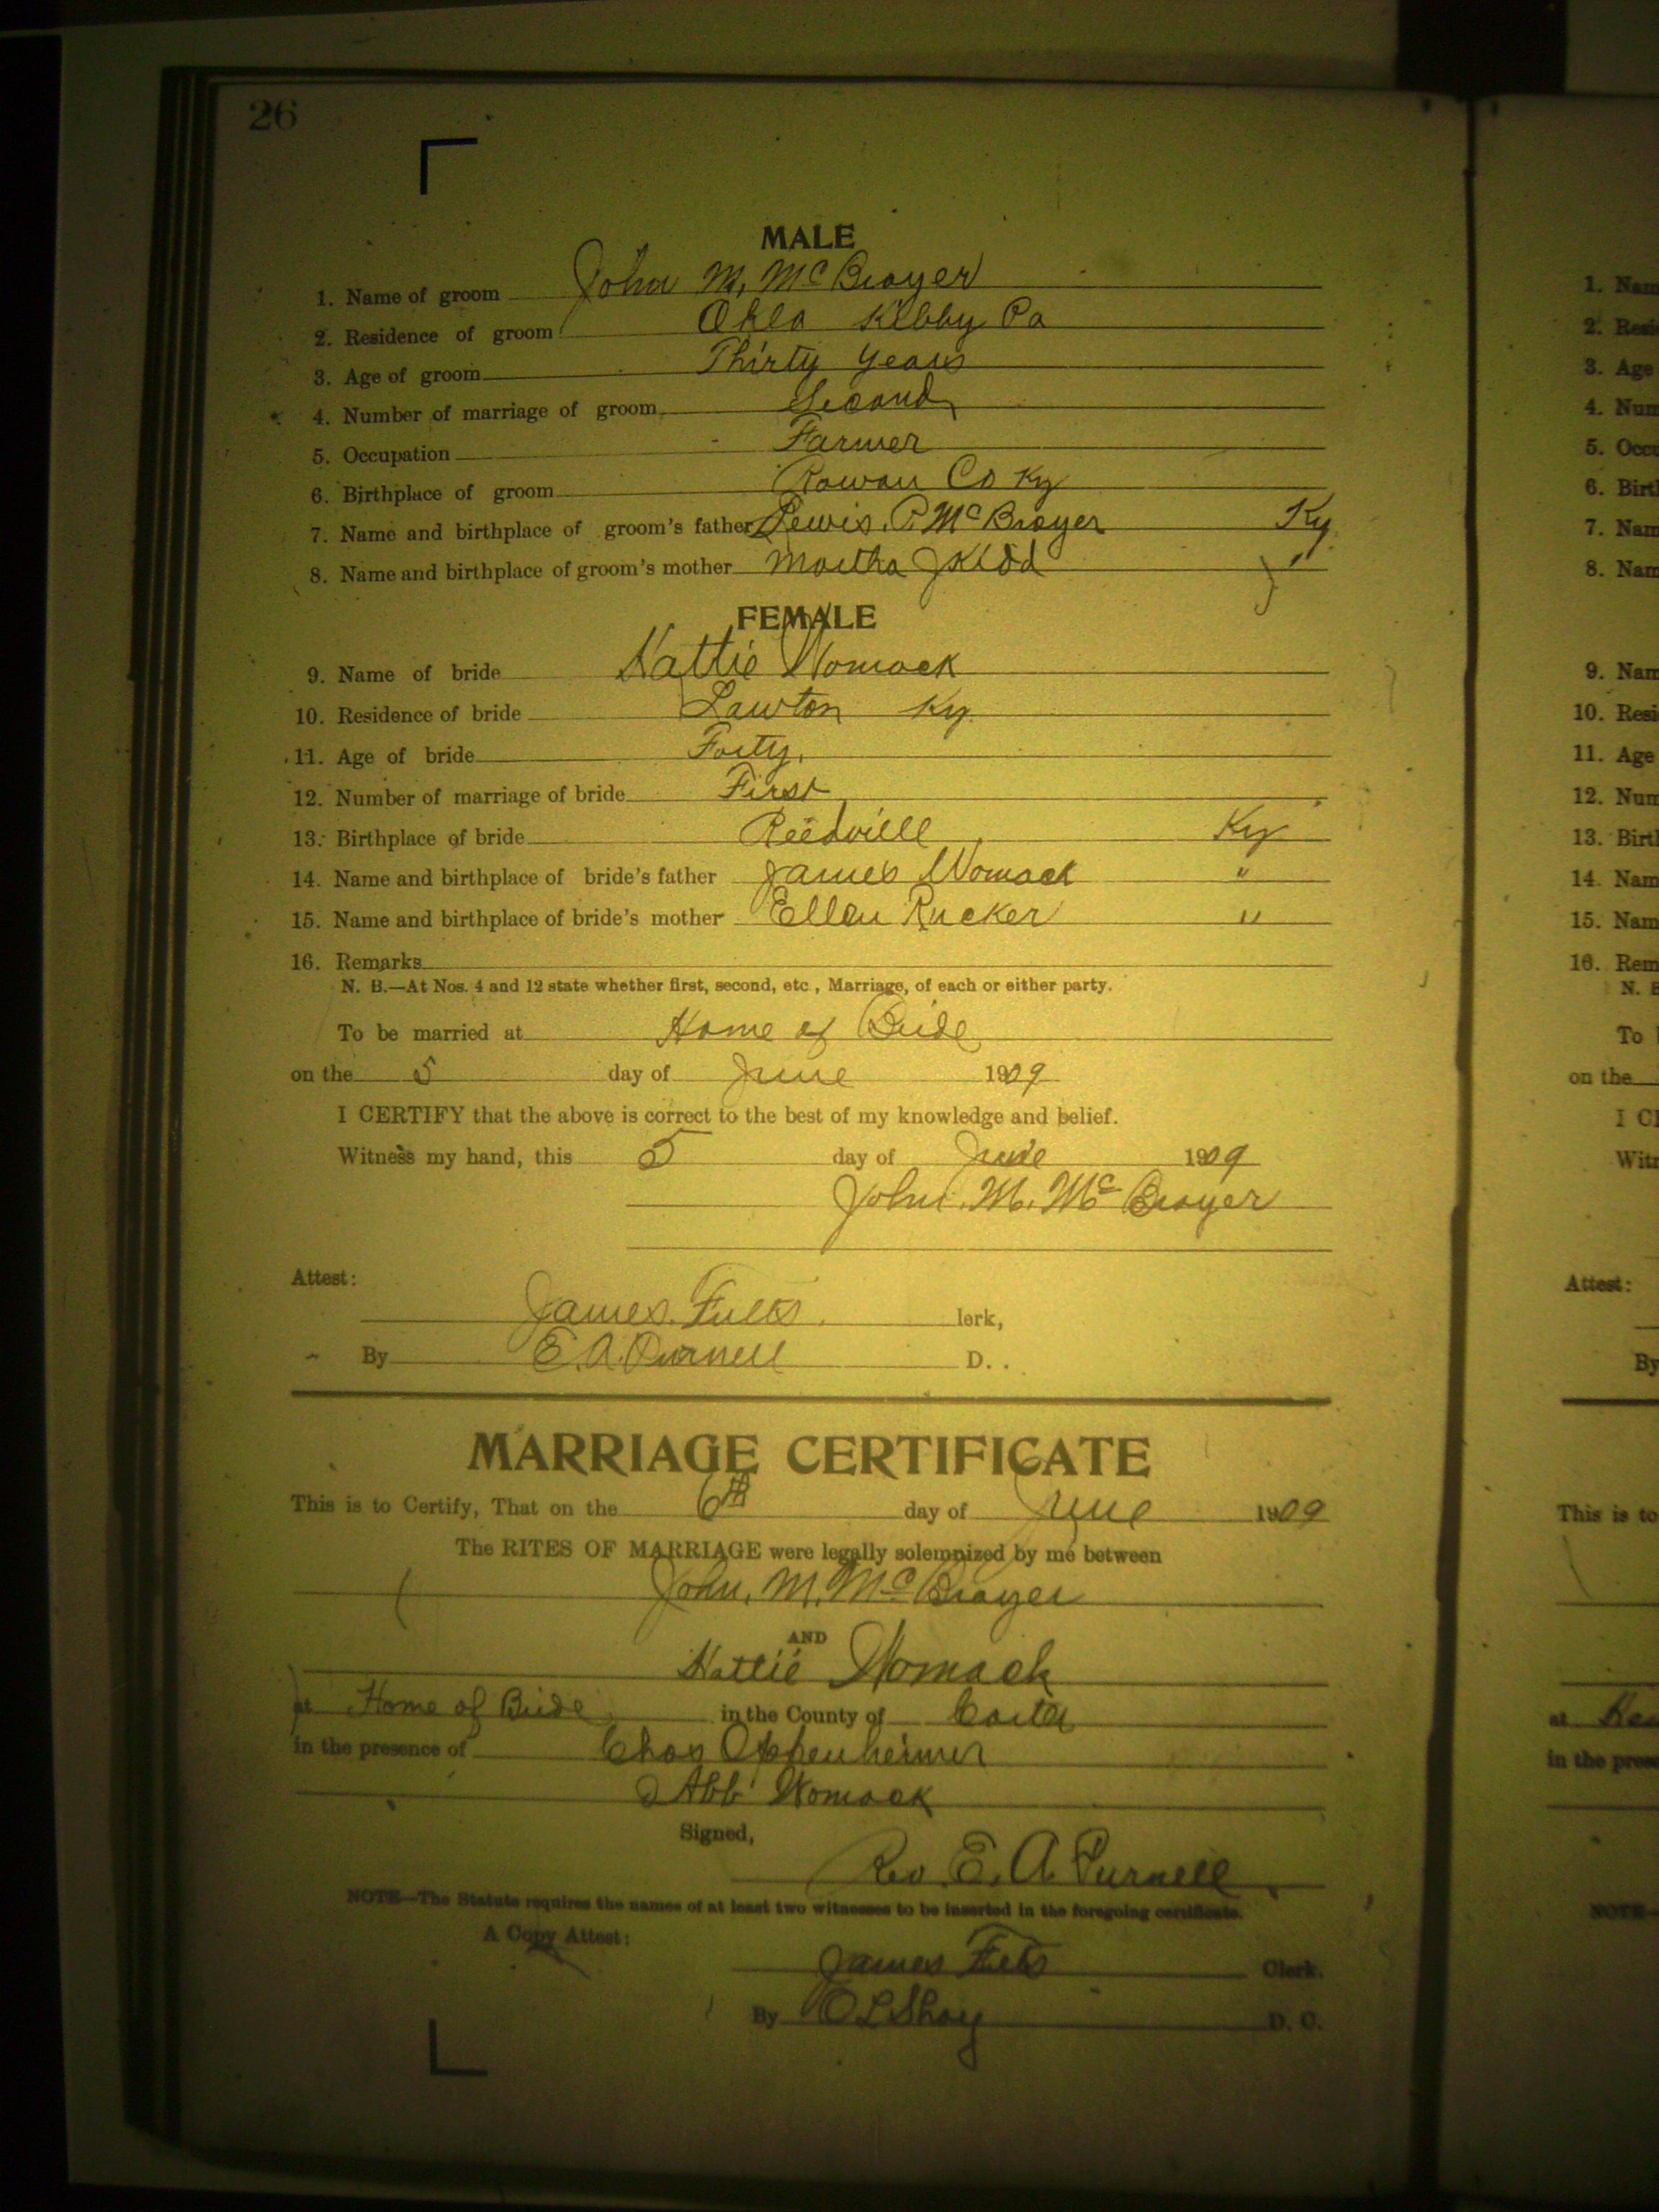 26
MALE
1. Name of groom John M. McBrayer
2. Residence of groom Okla Kibby Co
3. Age of groom Thirty Years
4. Number of marriage of groom Second
5. Occupation Farmer
6. Birthplace of groom Rowan Co Ky
7. Name and birthplace of groom's father Lewis. P. McBrayer Ky
8. Name and birthplace of groom's mother Martha J Kidd "
FEMALE
9. Name of bride Hattie Womack
10. Residence of bride Lawton Ky
11. Age of bride Forty
12. Number of marriage of bride First
13. Birthplace of bride Reedville Ky
14. Name and birthplace of bride's father James Womack "
15. Name and birthplace of bride's mother Ellen Rucker "
16. Remarks
N. B.—At Nos. 4 and 12 state whether first, second, etc., Marriage, of each or either party.
To be married at Home of Bride
on the 5 day of June 1909
I CERTIFY that the above is correct to the best of my knowledge and belief.
Witness my hand, this 5 day of June 1909
John. M. McBrayer
Attest:
James Fults lerk,
By E. A. Purnell D. .
MARRIAGE CERTIFICATE
This is to Certify, That on the 6th day of June 1909
The RITES OF MARRIAGE were legally solemnized by me between
John. M. McBrayer
AND
Hattie Womack
at Home of Bride in the County of Carter
in the presence of Chas Oppenheimer
Abb Womack
Signed,
Rev. E. A. Purnell
NOTE—The Statute requires the names of at least two witnesses to be inserted in the foregoing certificate.
A Copy Attest:
James Fults Clerk.
By D. C.
1. Nam
2. Resi
3. Age
4. Num
5. Occu
6. Birth
7. Nam
8. Nam
9. Nam
10. Resi
11. Age
12. Num
13. Birth
14. Nam
15. Nam
16. Rem
N. B
To
on the
I C
Witn
Attest:
By
This is to
at
in the prese
NOTE